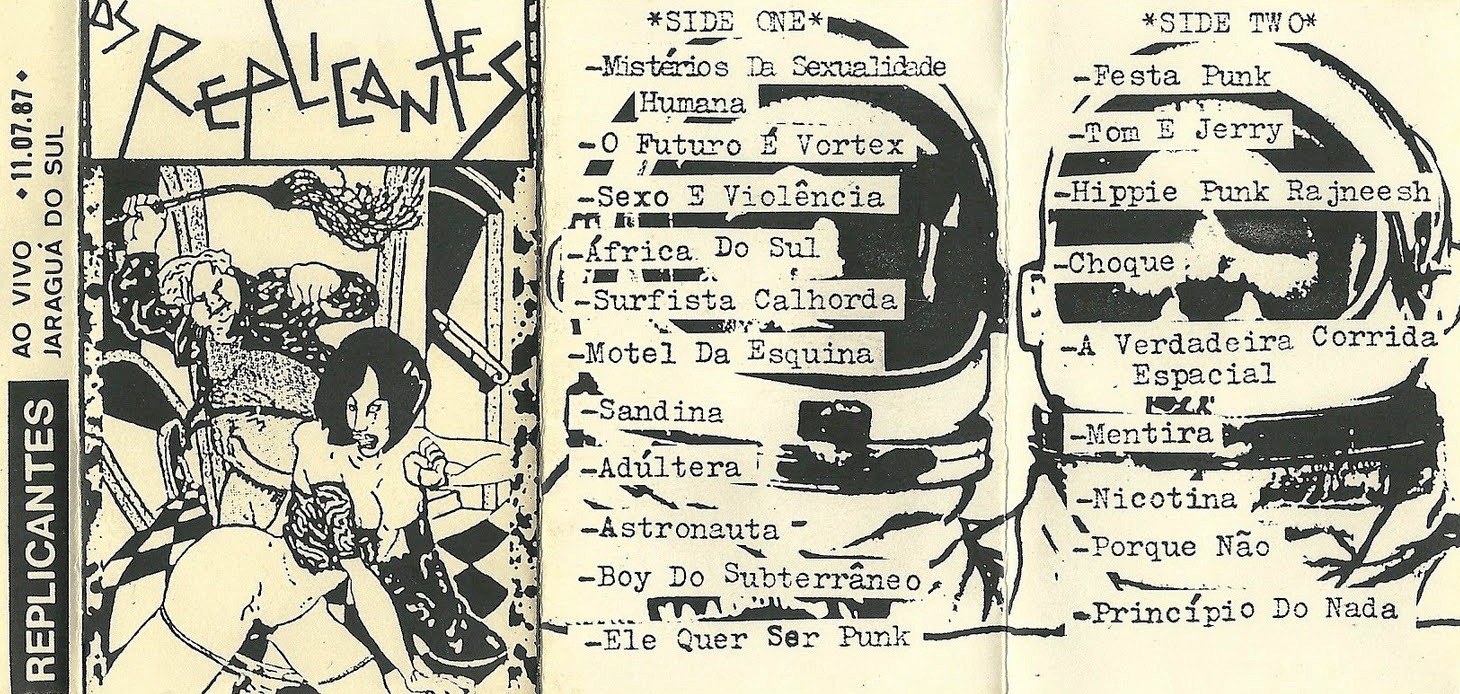 REPLICANTES
AO VIVO •11.07.87•
JARAGUÁ DO SUL
OS
REPLICANTES
*SIDE ONE*
-Mistérios Da Sexualidade
Humana
-O Futuro É Vortex
-Sexo E Violência
-África Do Sul
-Surfista Calhorda
-Motel Da Esquina
-Sandina
-Adúltera
-Astronauta
-Boy Do Subterrâneo
-Ele Quer Ser Punk
*SIDE TWO*
-Festa Punk
-Tom E Jerry
-Hippie Punk Rajneesh
-Choque
-A Verdadeira Corrida
Espacial
-Mentira
-Nicotina
-Porque Não
-Princípio Do Nada